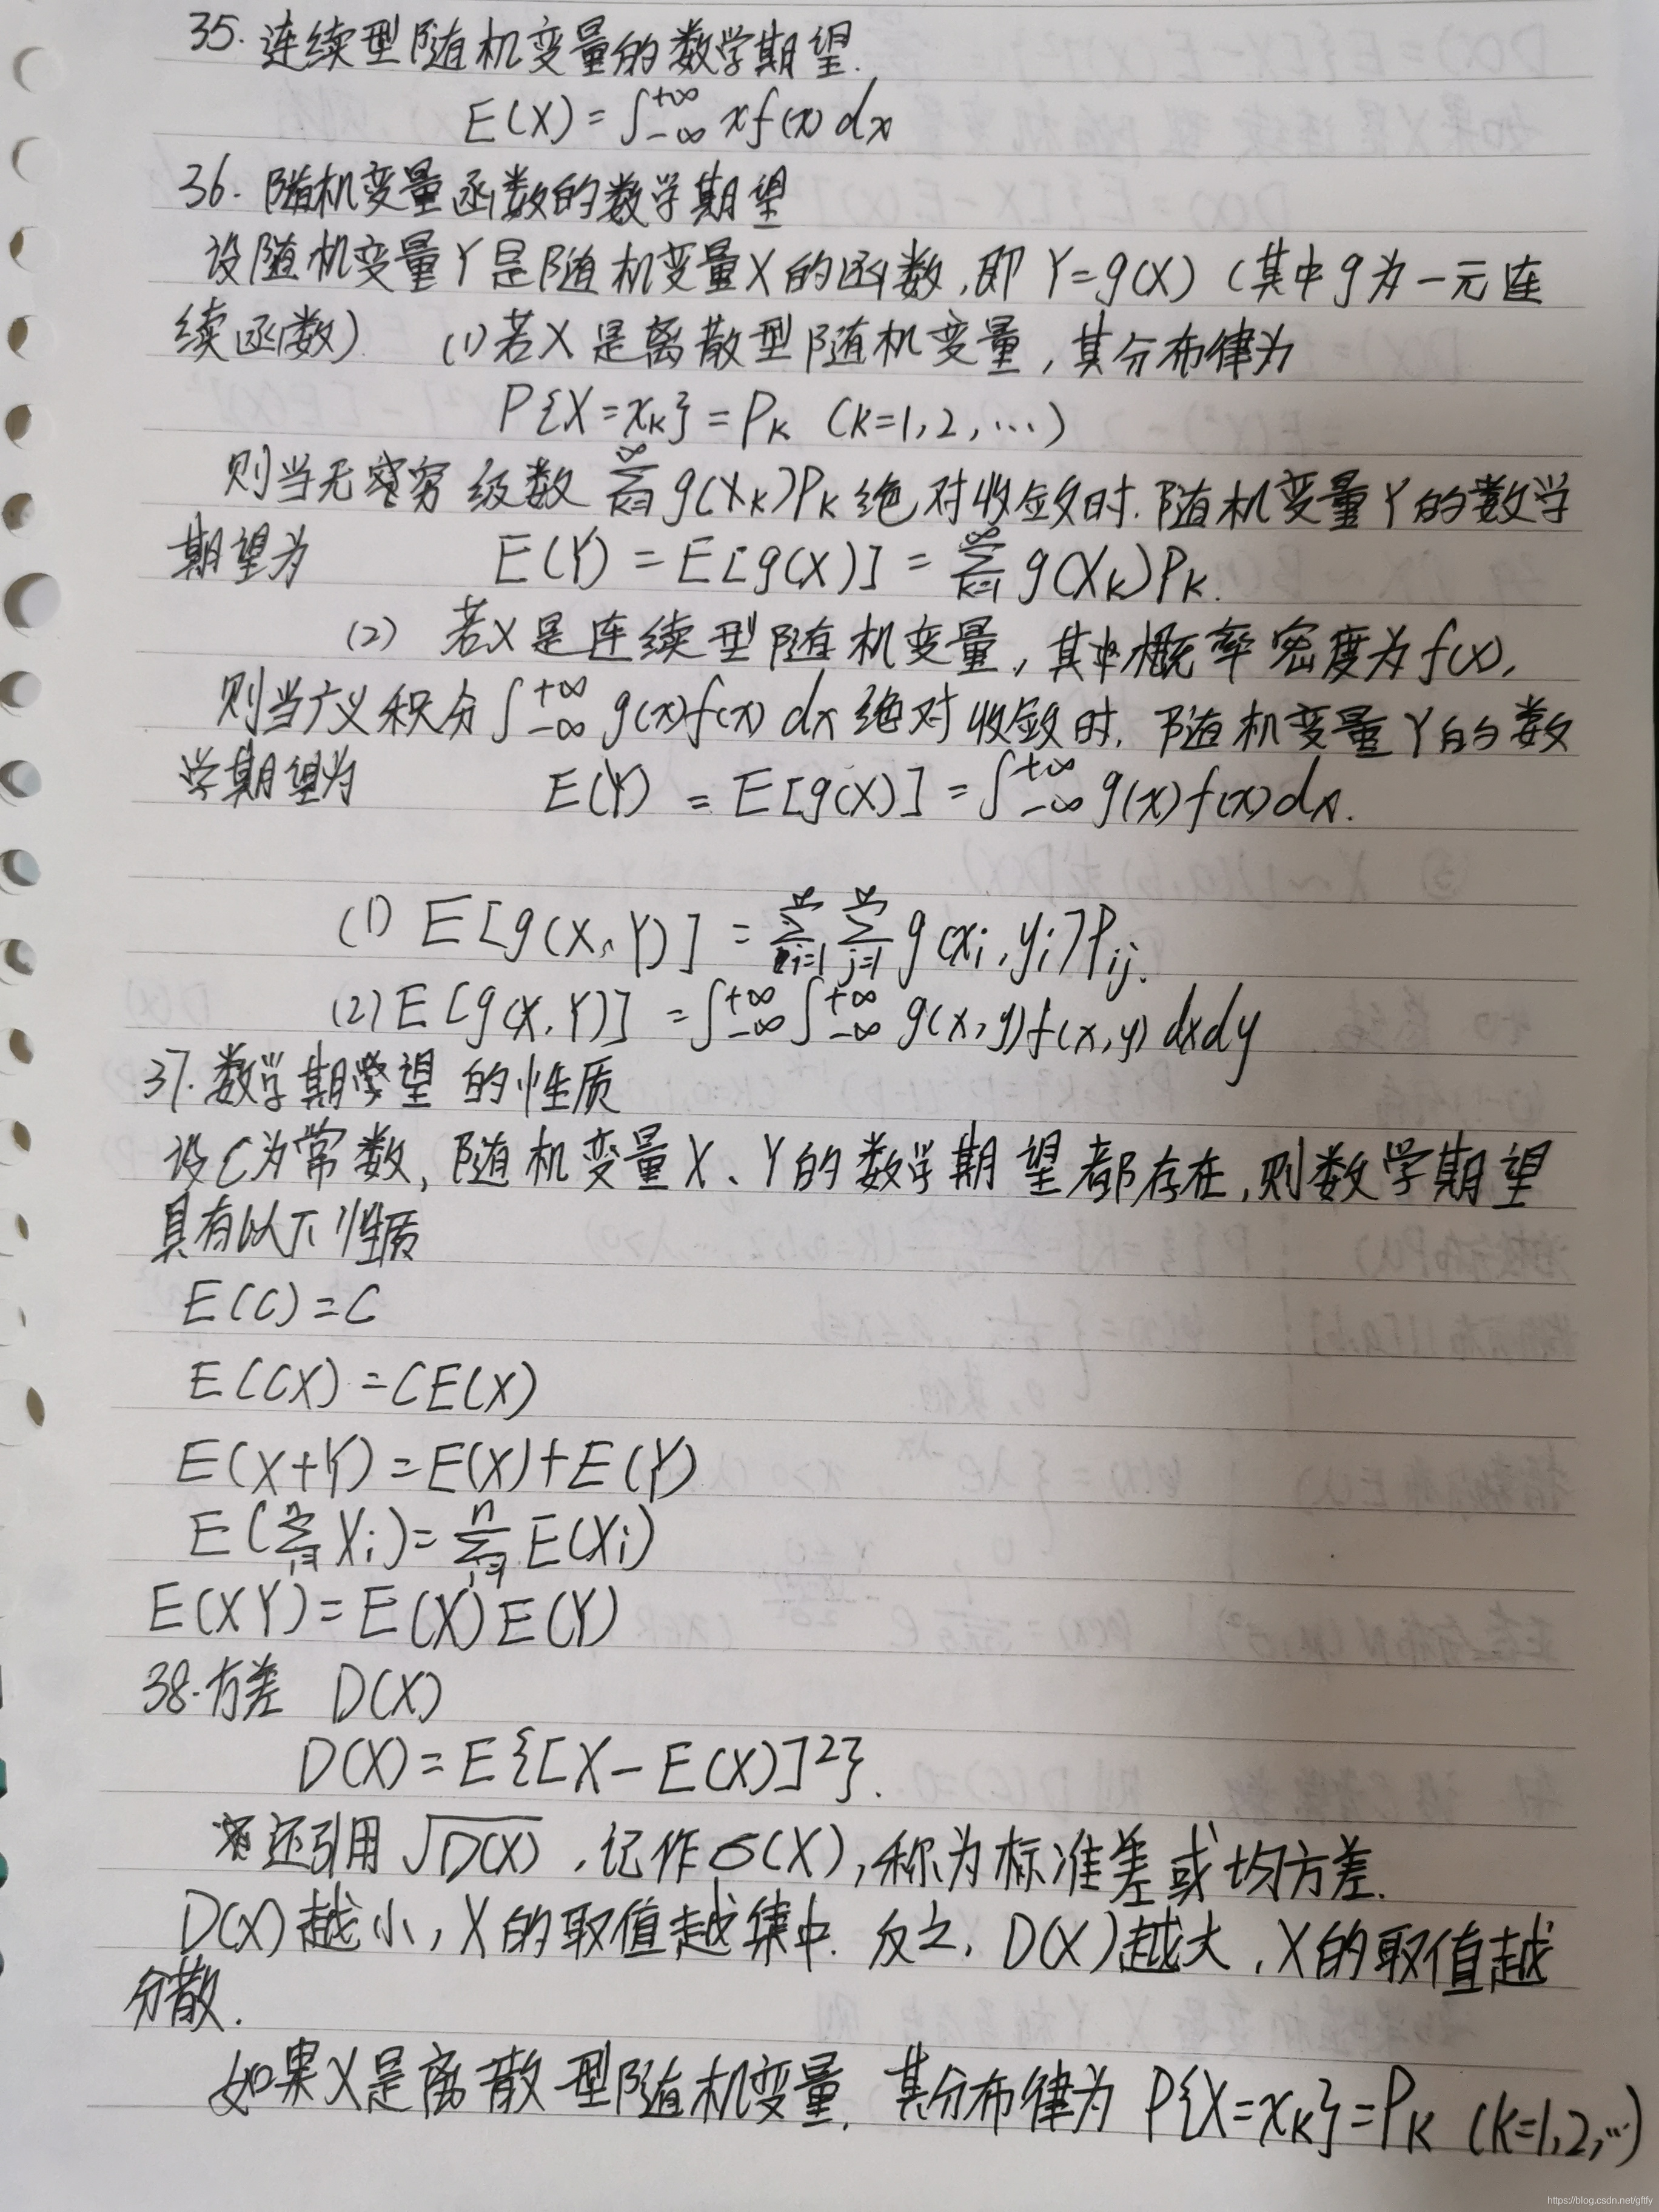 35. 连续型随机变量的数学期望.
E(X) = ∫_{-∞}^{+∞} x f(x) dx
36. 随机变量函数的数学期望
设随机变量Y是随机变量X的函数,即 Y=g(X) (其中g为一元连
续函数) (1)若X是离散型随机变量,其分布律为
P{X=x_k}=P_k (k=1,2,…)
则当无穷级数 ∑_{k=1}^{∞} g(x_k)P_k 绝对收敛时.随机变量Y的数学
期望为 E(Y) = E[g(X)] = ∑_{k=1}^{∞} g(x_k)P_k.
(2) 若X是连续型随机变量,其中概率密度为f(x),
则当广义积分 ∫_{-∞}^{+∞} g(x)f(x) dx 绝对收敛时,随机变量Y的数
学期望为 E(Y) = E[g(X)] = ∫_{-∞}^{+∞} g(x)f(x)dx.
(1) E[g(X,Y)] = ∑_{i=1}^{∞} ∑_{j=1}^{∞} g(x_i,y_i)P_{ij}.
(2) E[g(X,Y)] = ∫_{-∞}^{+∞} ∫_{-∞}^{+∞} g(x,y)f(x,y) dxdy
37.数学期望的性质
设C为常数,随机变量X、Y的数学期望都存在,则数学期望
具有以下性质
E(C)=C
E(CX)=CE(X)
E(X+Y)=E(X)+E(Y)
E(∑_{i=1}^{n} X_i)=∑_{i=1}^{n} E(X_i)
E(XY)=E(X)E(Y)
38.方差 D(X)
D(X)=E{[X-E(X)]²}.
还引用 √D(X) ,记作σ(X),称为标准差或均方差.
D(X)越小,X的取值越集中.反之,D(X)越大,X的取值越
分散.
如果X是离散型随机变量,其分布律为 P{X=x_k}=P_k (k=1,2,…)
https://blog.csdn.net/gftfy